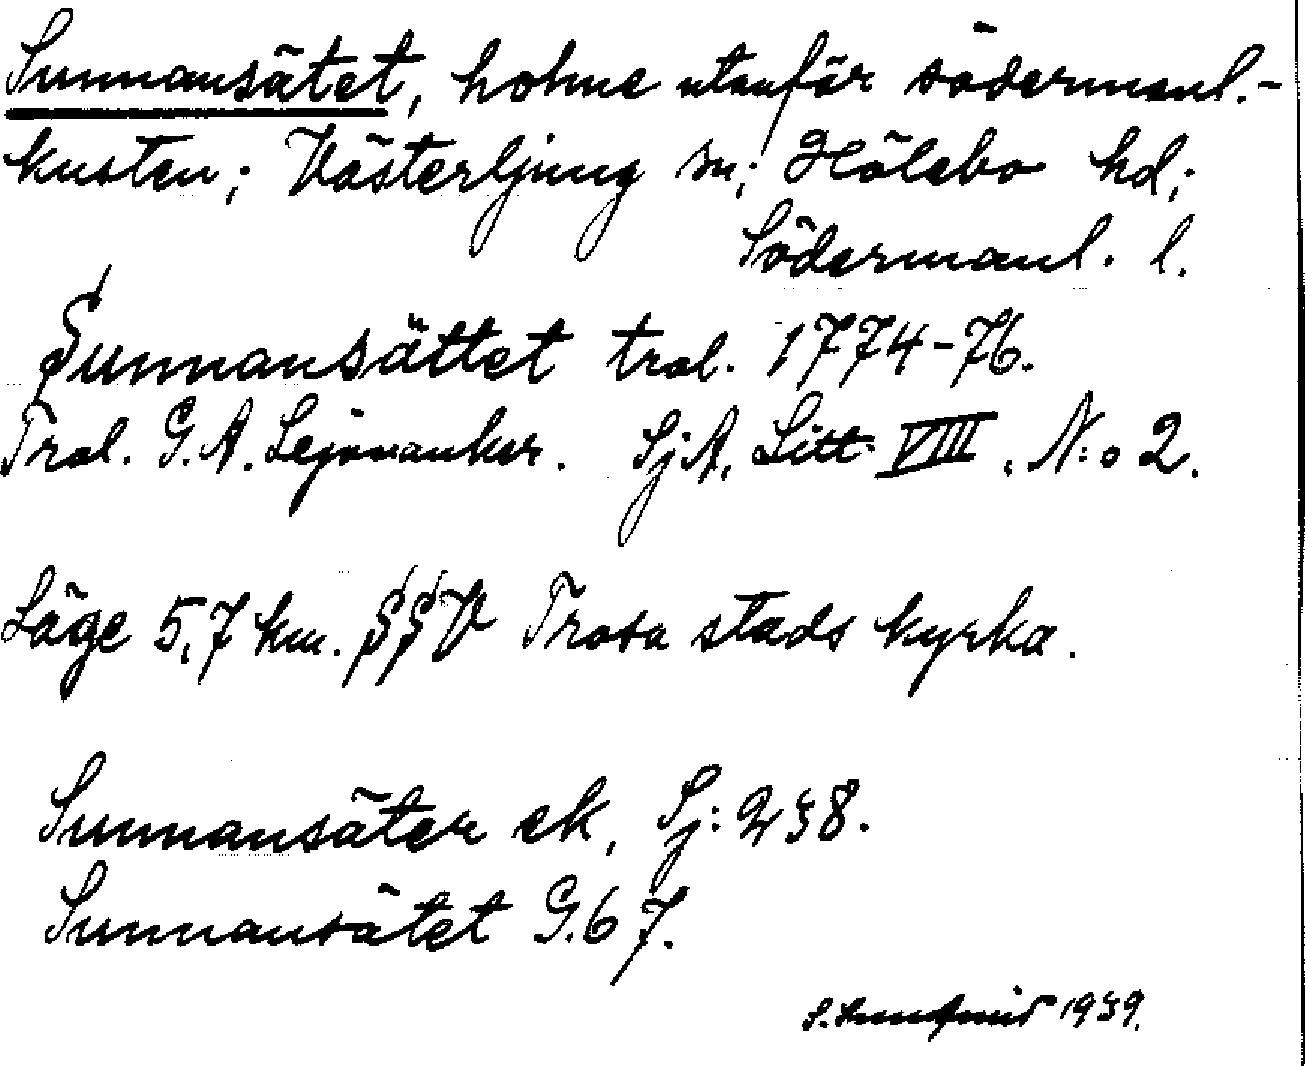 Sunnansätet, holme utanför södermanl.-
kusten; Västerljung sn; Hölebo hd;
Södermanl. l.
Sunnansättet trol. 1774-76.
Trol. G. A. Lejonanker. SjA, Litt VIII, N:o 2.
Läge 5,7 km. SSV Trosa stads kyrka.
Sunnansäter ek, Sj: 238.
Sunnansätet G. 67.
S. 1939.